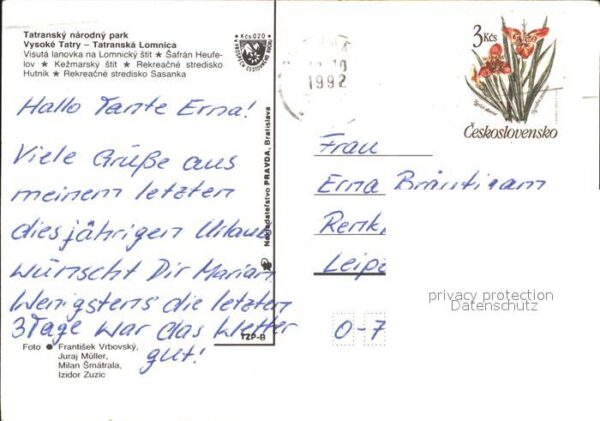 Tatranský národný park
Vysoké Tatry – Tatranská Lomnica
Visutá lanovka na Lomnický štít ● Šafrán Heufe-
lov ● Kežmarský štít ● Rekreačné stredisko
Hutník ● Rekreačné stredisko Sasanka
Kčs 020
1992
3 Kčs
Československo
Hallo Tante Erna!
Viele Grüße aus
meinem letzten
diesjährigen Urlaub
wünscht Dir Marian
Wenigstens die letzten
3 Tage war das Wetter
gut!
Nakladateľstvo PRAVDA, Bratislava
TZP-B
Frau
Erna Bräutigam
Renk
Leipz
O-7
privacy protection
Datenschutz
Foto ● František Vrbovský,
Juraj Müller,
Milan Šmátrala,
Izidor Zuzic